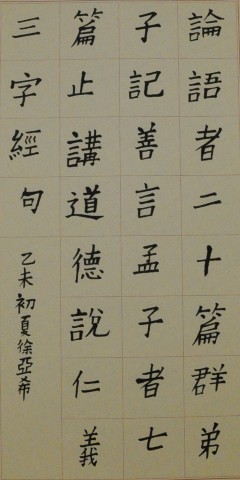 論語者二十篇群弟
子記善言孟子者七
篇止講道德說仁義
三字經句
乙未初夏徐亞希